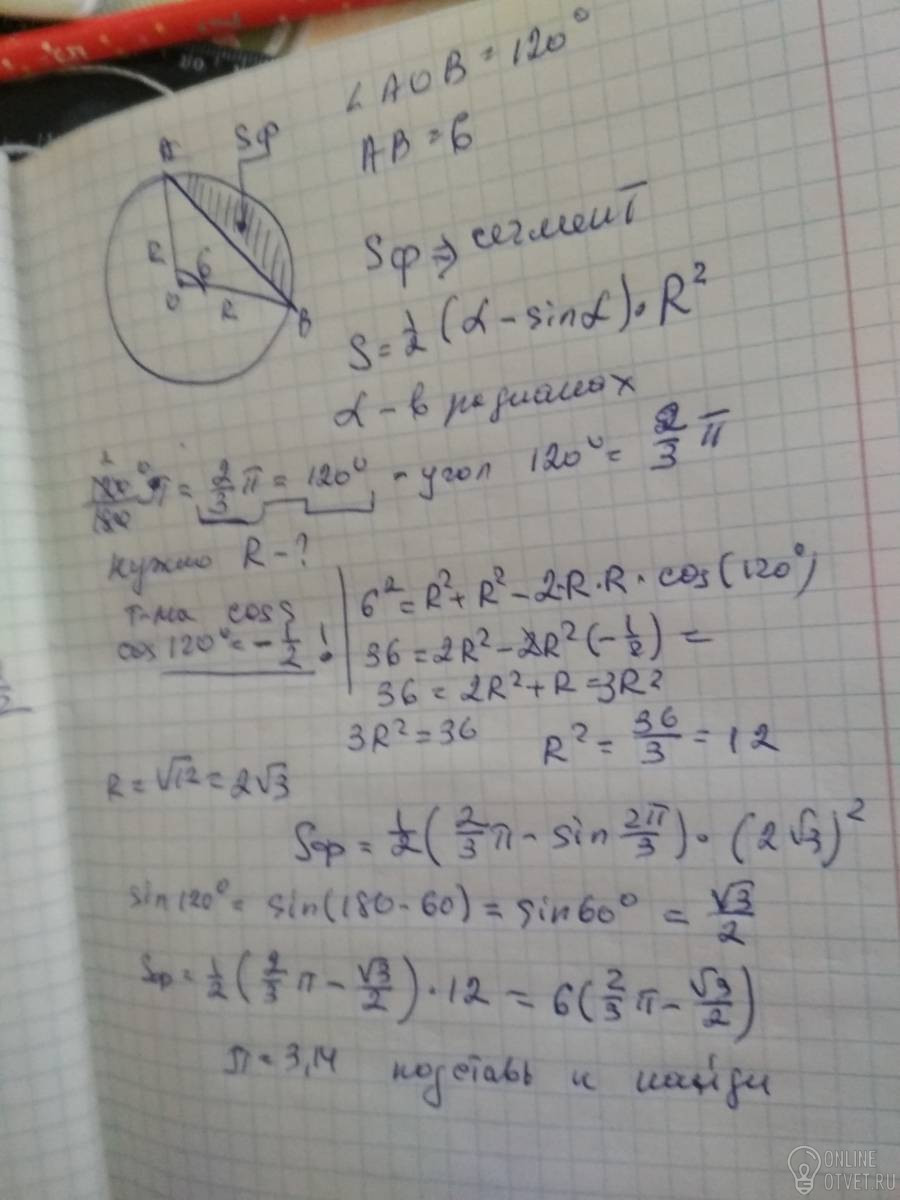 ∠AOB = 120°
AB = 6
Sф
A
R
6
O
R
B
Sф ⇒ сегмент
S = 1/2 (α - sin α) · R²
α - в радианах
π = 2/3 π = 120° - угол 120° = 2/3 π
нужно R - ?
т-ма cos
cos 120° = -1/2 !
6² = R² + R² - 2·R·R · cos(120°)
36 = 2R² - 2R² (-1/2) =
36 = 2R² + R = 3R²
3R² = 36 R² = 36/3 = 12
R = √12 = 2√3
Sф = 1/2 (2/3 π - sin 2π/3) · (2√3)²
sin 120° = sin(180 - 60) = sin 60° = √3/2
Sф = 1/2 (2/3 π - √3/2) · 12 = 6(2/3 π - √3/2)
π = 3,14 подставь и найди
ONLINE
OTVET.RU